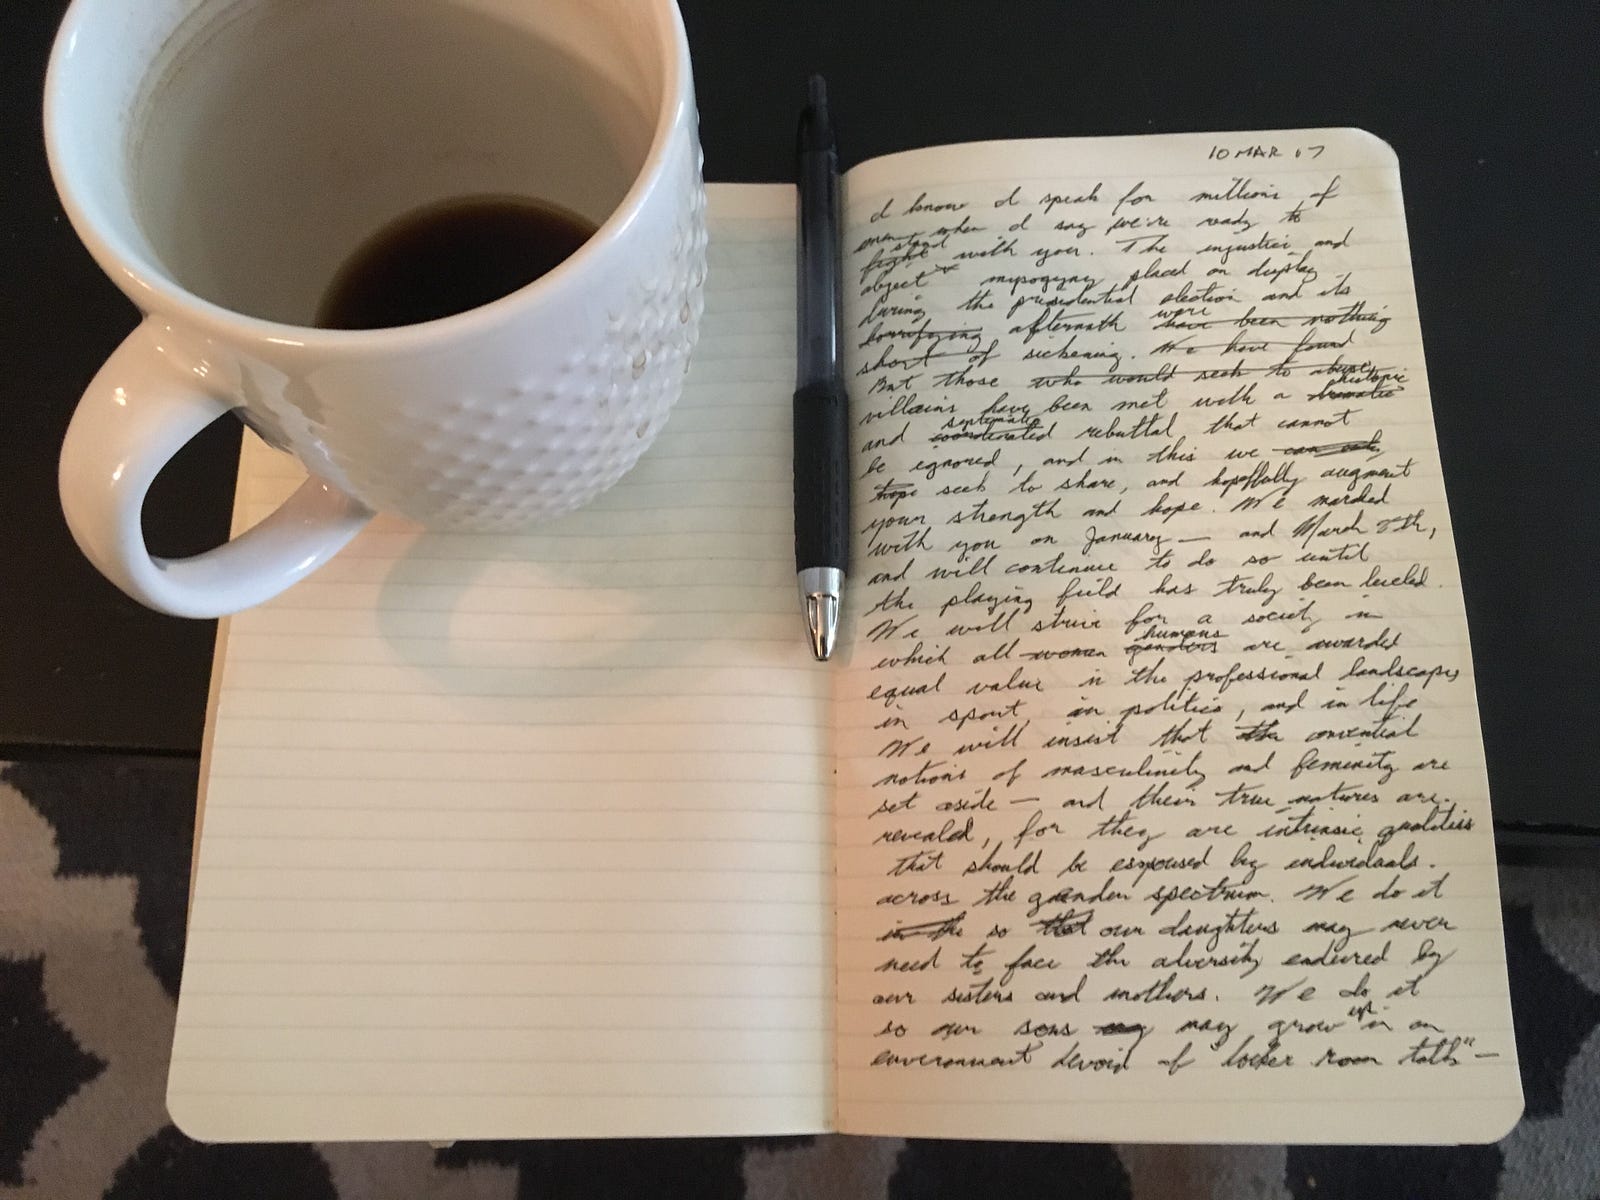 10 MAR 17
I know I speak for millions of
men when I say we're ready to
stand
fight with you. The injustice and
abject misogyny placed on display
during the presidential election and its
were
horrifying aftermath have been nothing
short of sickening. We have found
But those who would seek to abuse
historic
villains have been met with a dramatic
systematic
and coordinated rebuttal that cannot
be ignored, and in this we can only
hope seek to share, and hopefully augment
your strength and hope. We marched
with you on January — and March 8th,
and will continue to do so until
the playing field has truly been leveled.
We will strive for a society in
humans
which all women genders are awarded
equal value in the professional landscapes
in sport, in politics, and in life
We will insist that the convential
notions of masculinity and feminity are
set aside — and their true natures are
revealed, for they are intrinsic qualities
that should be espoused by individuals
across the gender spectrum. We do it
in the so that our daughters may never
need to face the adversity endured by
our sisters and mothers. We do it
up
so our sons may may grow in an
environment devoid of "locker room talk" —